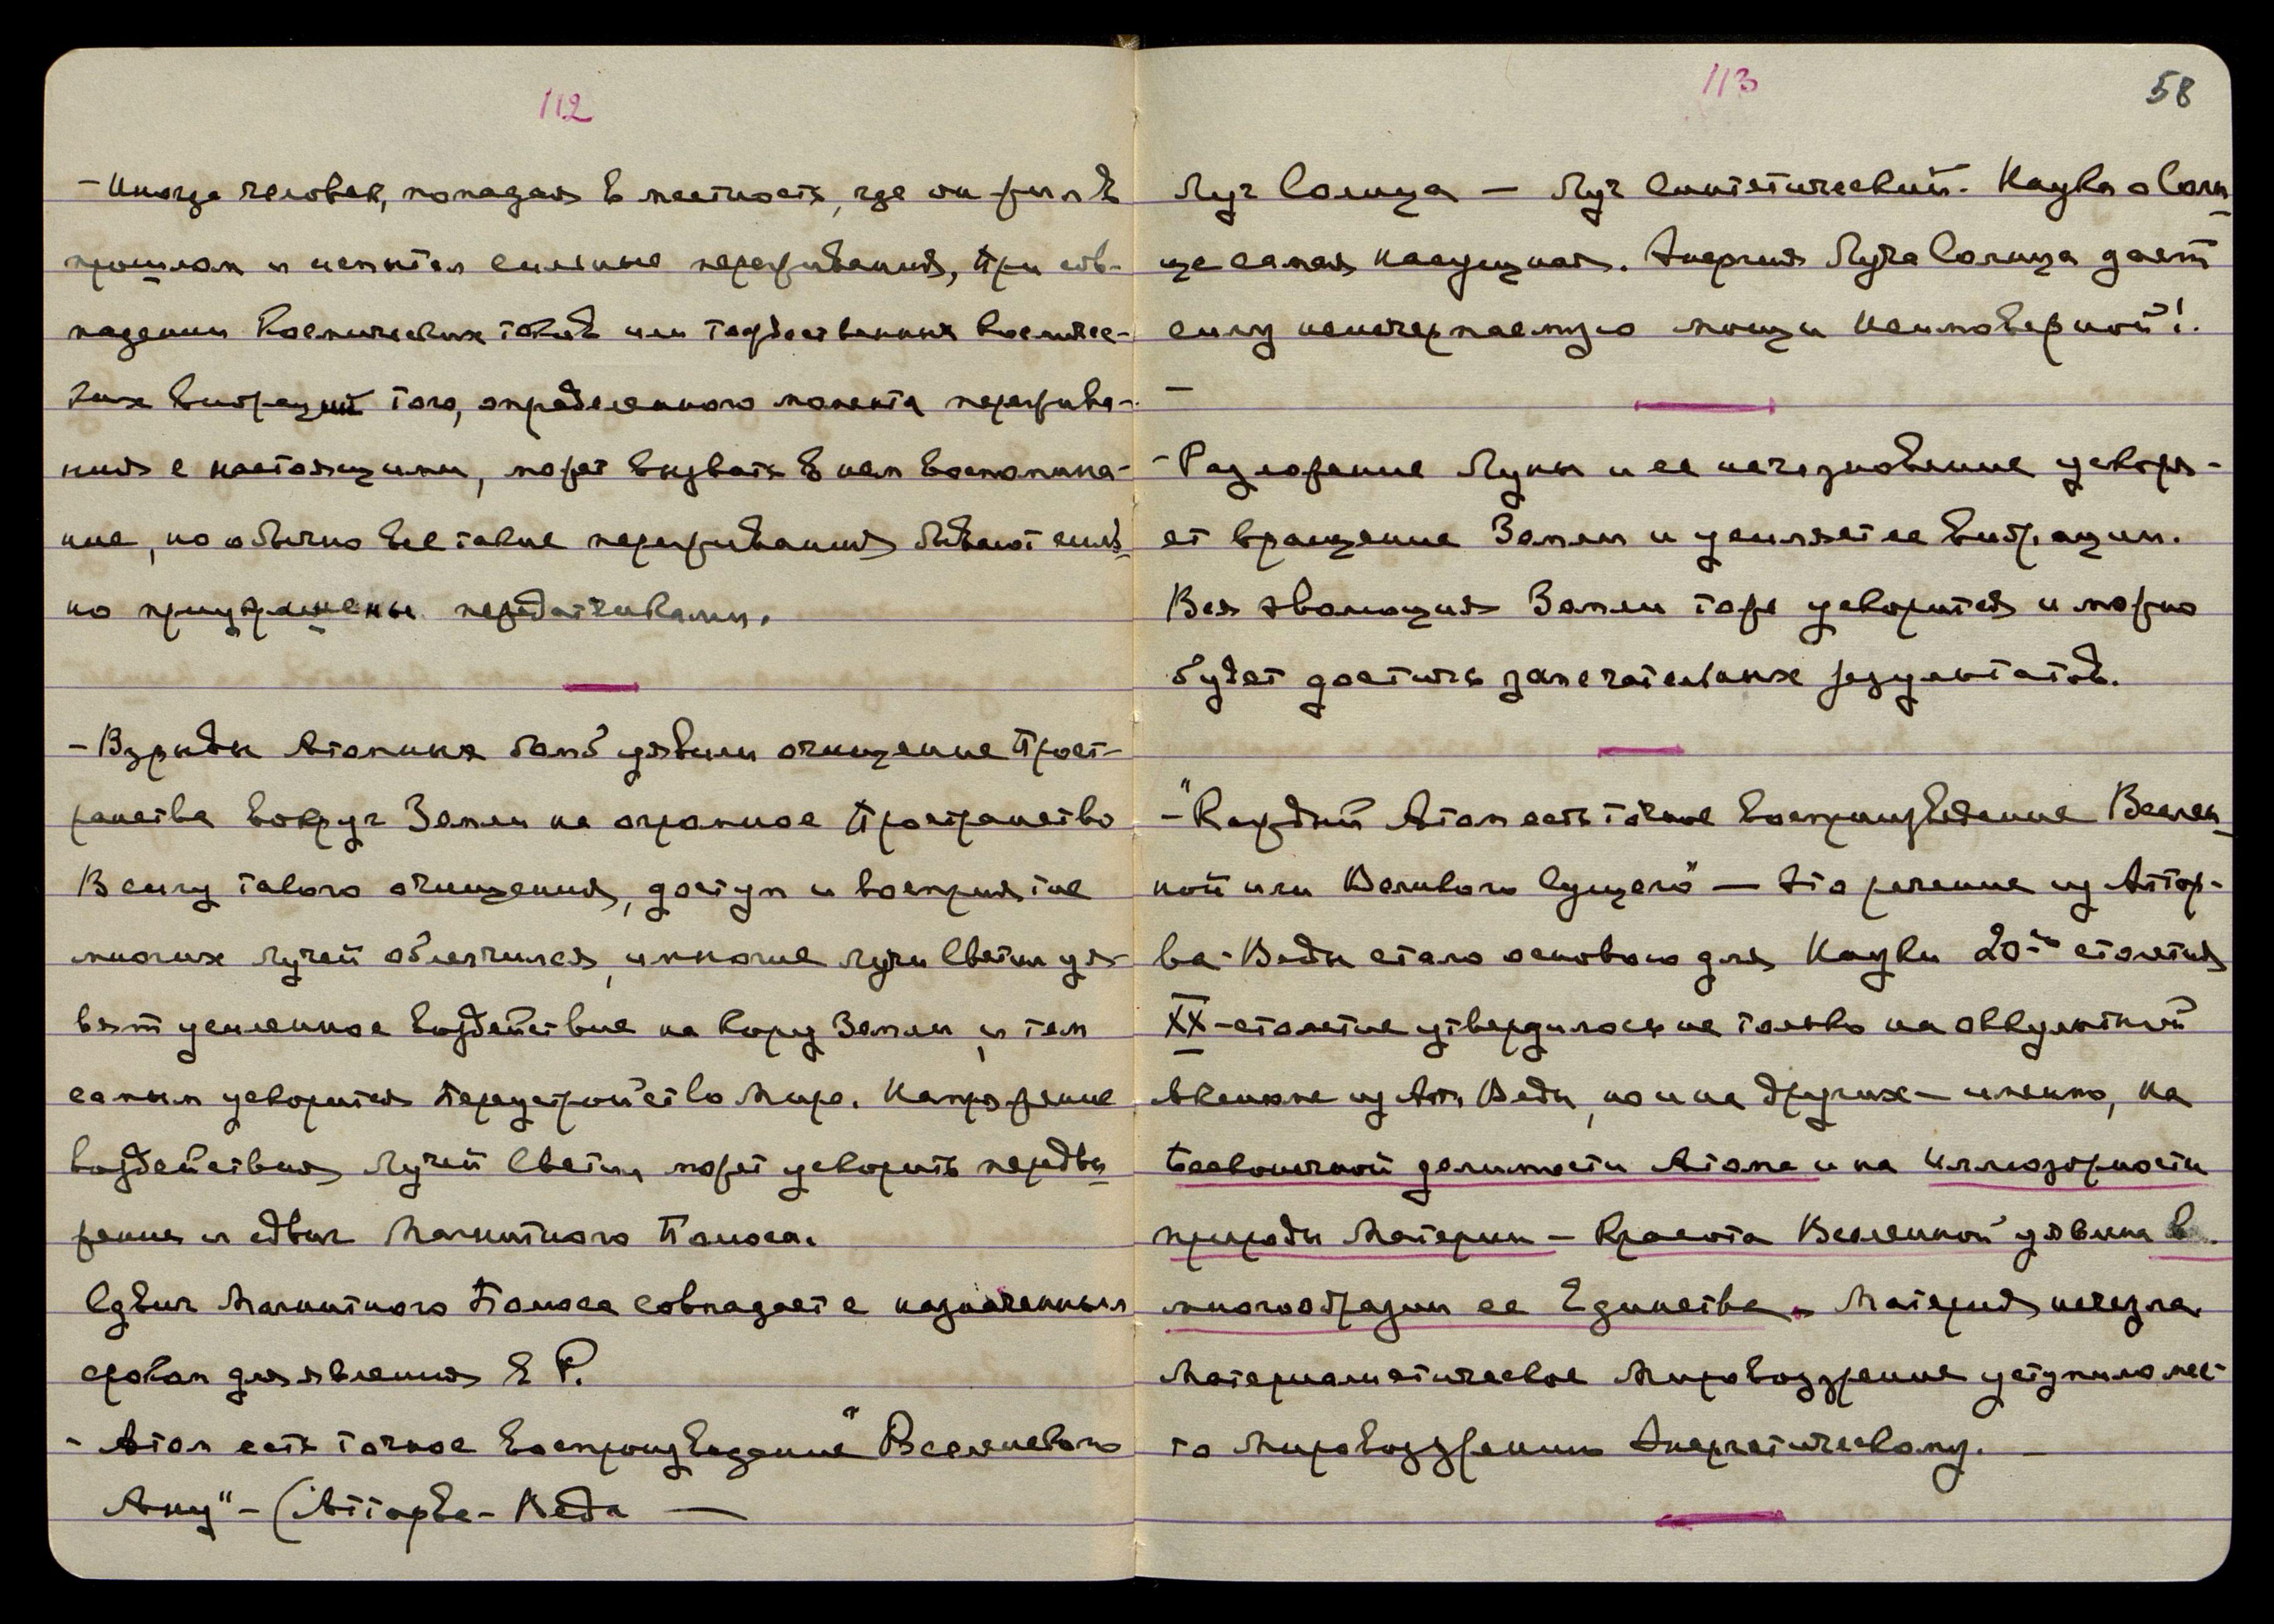 112
- Иногда человек, попадая в местность, где он жил в
прошлом и испытал сильные переживания, при сов-
падении Космических токов или тождественных космичес-
ких вибраций того, определенного момента пережива-
ния с настоящими, может вызвать в нем воспомина-
ние, но обычно все такие переживания бывают силь-
но приукрашены передатчиками.
- Взрывы Атомных бомб уявили очищение Прост-
ранства вокруг Земли на огромное Пространство
В силу такого очищения, доступ и восприятие
многих лучей облегчился, и многие лучи Светил уя-
вят усиленное воздействие на Кору Земли и тем
самым ускорится Переустройство Мира. Напряжение
воздействия Лучей Светил может ускорить передви-
жение и сдвиг Магнитного Полюса.
Сдвиг Магнитного Полюса совпадает с назначенным
сроком для явления в Р.
- Атом есть точное воспроизведение "Вселенского
Ану" - (Аттарва-Веда —
113
58
Луч Солнца — Луч Синтетический. Наука о Солн-
це самая насущная. Энергия Луча Солнца дает
силу неисчерпаемую мощи неимоверной!.
—
- Разложение Луны и ее исчезновение ускоря-
ет вращение Земли и усиляет ее вибрации.
Вся эволюция Земли тоже ускорится и можно
будет достичь замечательных результатов.
- "Каждый Атом есть точное воспроизведение Вселен-
ной или Великого Сущего" — Это речение из Аттар-
ва-Веды стало основою для Науки 20-го столетия
XX-столетие утвердилось не только на оккультной
Аксиоме из Атт. Веды, но и на других — именно, на
Бесконечной делимости Атома и на Иллюзорности
природы Материи - Красота Вселенной уявлена в
многообразии ее Единства. Материя исчезла.
Материалистическое Мировоззрение уступило мес-
то Мировоззрению Энергетическому. —